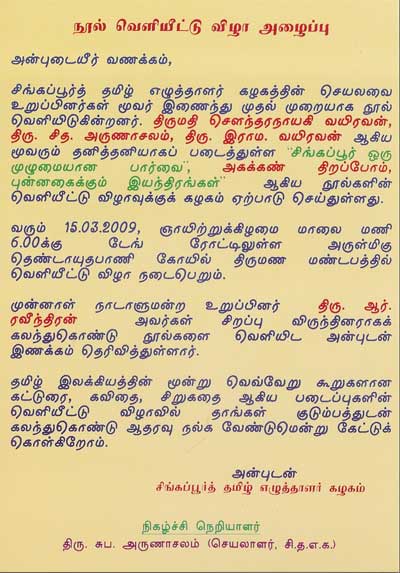 நூல் வெளியீட்டு விழா அழைப்பு
அன்புடையீர் வணக்கம்,
சிங்கப்பூர்த் தமிழ் எழுத்தாளர் கழகத்தின் செயலவை
உறுப்பினர்கள் மூவர் இணைந்து முதல் முறையாக நூல்
வெளியிடுகின்றனர். திருமதி சௌந்தரநாயகி வயிரவன்,
திரு. சித. அருணாசலம், திரு. இராம. வயிரவன் ஆகிய
மூவரும் தனித்தனியாகப் படைத்துள்ள "சிங்கப்பூர் ஒரு
முழுமையான பார்வை", அகக்கண் திறப்போம்,
புன்னகைக்கும் இயந்திரங்கள்" ஆகிய நூல்களின்
வெளியீட்டு விழாவுக்குக் கழகம் ஏற்பாடு செய்துள்ளது.
வரும் 15.03.2009, ஞாயிற்றுக்கிழமை மாலை மணி
6.00க்கு டேங் ரோட்டிலுள்ள அருள்மிகு
தெண்டாயுதபாணி கோயில் திருமண மண்டபத்தில்
வெளியீட்டு விழா நடைபெறும்.
முன்னாள் நாடாளுமன்ற உறுப்பினர் திரு. ஆர்.
ரவீந்திரன் அவர்கள் சிறப்பு விருந்தினராகக்
கலந்துகொண்டு நூல்களை வெளியிட அன்புடன்
இணக்கம் தெரிவித்துள்ளார்.
தமிழ் இலக்கியத்தின் மூன்று வெவ்வேறு கூறுகளான
கட்டுரை, கவிதை, சிறுகதை ஆகிய படைப்புகளின்
வெளியீட்டு விழாவில் தாங்கள் குடும்பத்துடன்
கலந்துகொண்டு ஆதரவு நல்க வேண்டுமென்று கேட்டுக்
கொள்கிறோம்.
அன்புடன்
சிங்கப்பூர்த் தமிழ் எழுத்தாளர் கழகம்
நிகழ்ச்சி நெறியாளர்
திரு. சுப. அருணாசலம் (செயலாளர், சி.த.எ.க.)